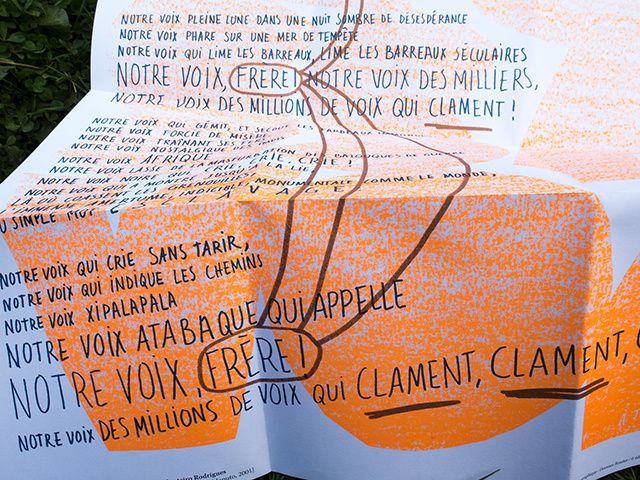 NOTRE VOIX PLEINE LUNE DANS UNE NUIT SOMBRE DE DÉSESPÉRANCE
NOTRE VOIX PHARE SUR UNE MER DE TEMPÊTE
NOTRE VOIX QUI LIME LES BARREAUX, LIME LES BARREAUX SÉCULAIRES
NOTRE VOIX, FRÈRE! NOTRE VOIX DES MILLIERS,
NOTRE VOIX DES MILLIONS DE VOIX QUI CLAMENT!
NOTRE VOIX QUI GÉMIT, ET SECOUE LES
NOTRE VOIX FORCIE DE MISÈRE
NOTRE VOIX TRAÎNANT SES
NOTRE VOIX NOSTALGIQUE
NOTRE VOIX AFRIQUE
NOTRE VOIX LASSE DE LA MASTURBATION DES BATUQUES DE GUERRE
NOTRE VOIX NOIRE QUI CRIE, CRIE, CRIE
NOTRE VOIX QUI A MONTRÉ JUSQU'À LA LIE
LÀ OÙ COASSENT LES GRENOUILLES,
AMERTUME, INDICIBLE, MONUMENTALE COMME LE MONDE,
DU SIMPLE MOT ESCLAVAGE
NOTRE VOIX QUI CRIE SANS TARIR,
NOTRE VOIX QUI INDIQUE LES CHEMINS
NOTRE VOIX XIPALAPALA
NOTRE VOIX ATABAQUE QUI APPELLE
NOTRE VOIX, FRÈRE!
NOTRE VOIX DES MILLIONS DE VOIX QUI CLAMENT, CLAMENT,
Rodrigues
2001]